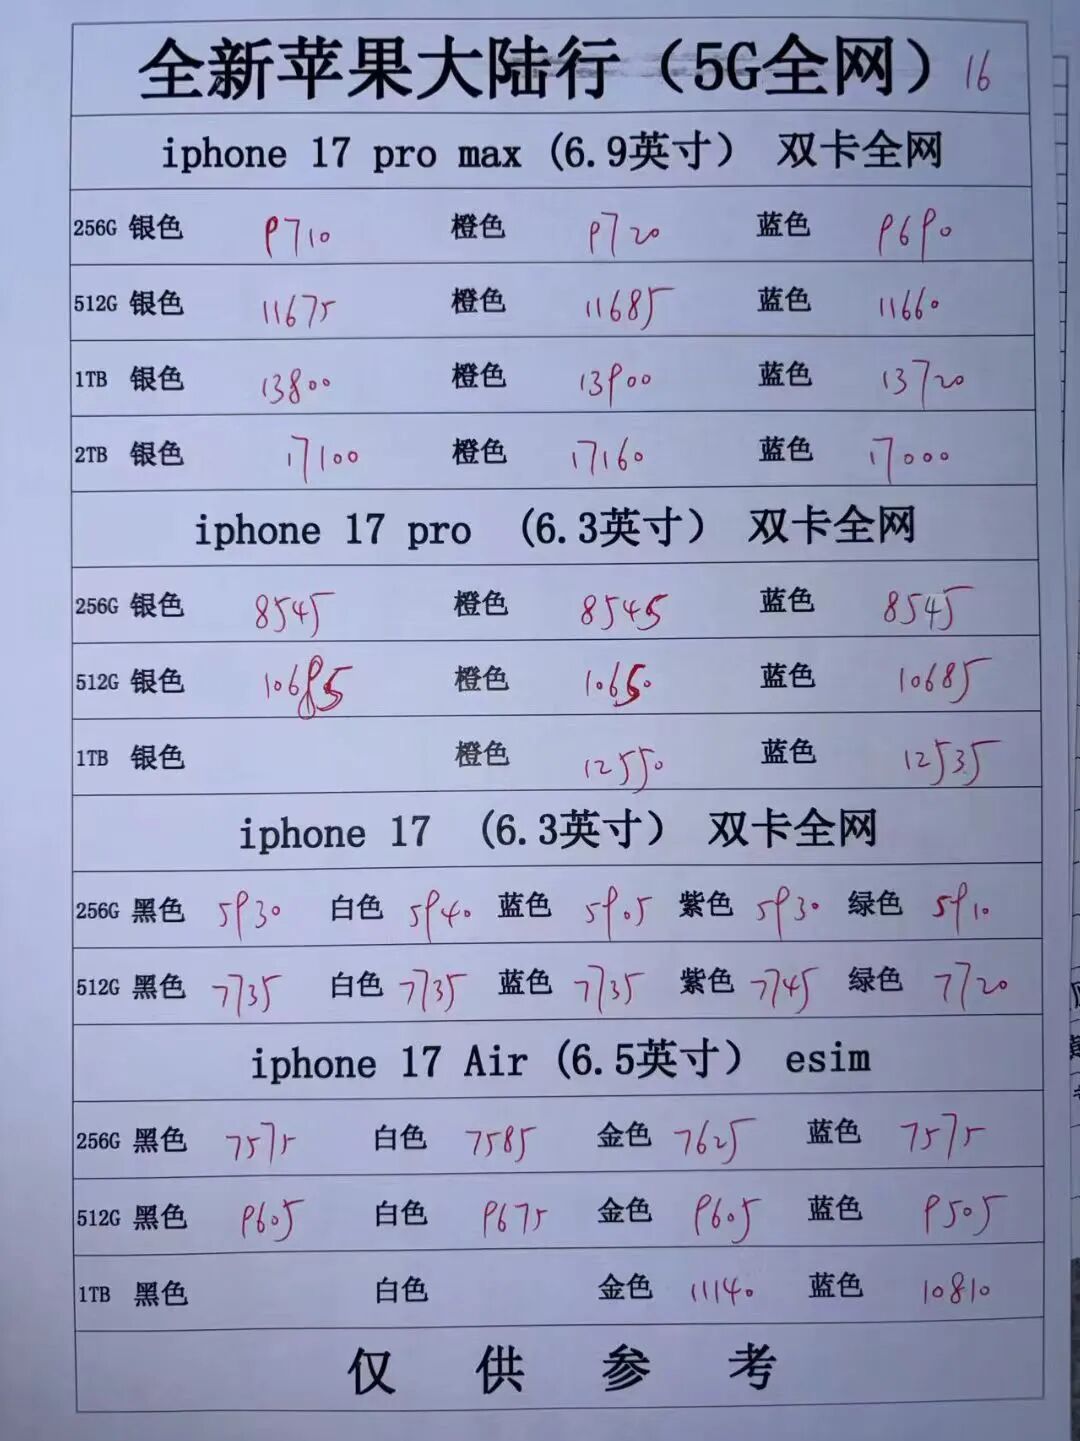 全新苹果大陆行（5G全网）16
iphone 17 pro max (6.9英寸） 双卡全网
256G 银色 9710 橙色 9720 蓝色 9690
512G 银色 11675 橙色 11685 蓝色 11660
1TB 银色 13800 橙色 13900 蓝色 13720
2TB 银色 17100 橙色 17160 蓝色 17000
iphone 17 pro (6.3英寸） 双卡全网
256G 银色 8545 橙色 8545 蓝色 8545
512G 银色 10685 橙色 10650 蓝色 10685
1TB 银色 橙色 12550 蓝色 12535
iphone 17 (6.3英寸） 双卡全网
256G 黑色 5930 白色 5940 蓝色 5905 紫色 5930 绿色 5910
512G 黑色 7735 白色 7735 蓝色 7735 紫色 7745 绿色 7720
iphone 17 Air (6.5英寸） esim
256G 黑色 7575 白色 7585 金色 7625 蓝色 7575
512G 黑色 9605 白色 9675 金色 9605 蓝色 9505
1TB 黑色 白色 金色 11140 蓝色 10810
仅 供 参 考